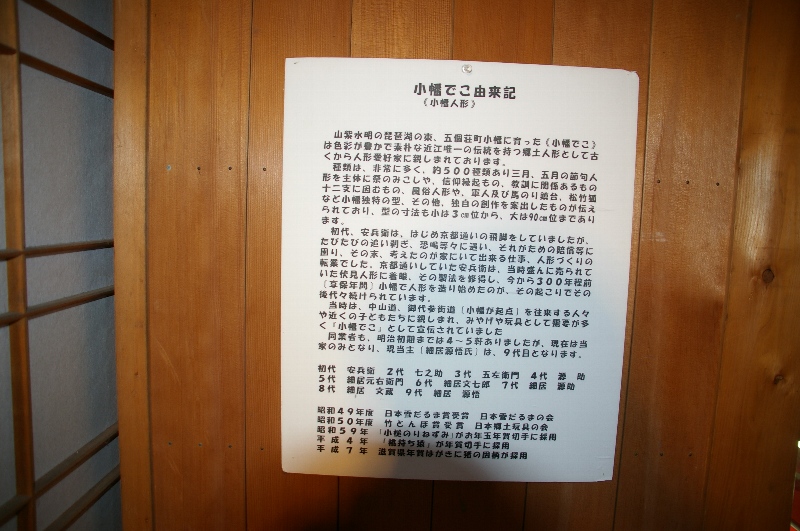 小幡でこ由来記
《小幡人形》
山紫水明の琵琶湖の東、五個荘町小幡に育った《小幡でこ》
は色彩が豊かで素朴な近江唯一の伝統を持つ郷土人形として古
くから人形愛好家に親しまれております。
種類は、非常に多く、約500種類あり三月、五月の節句人
形を主体に祭のみこしや、信仰縁起もの、教訓に関係あるもの
十二支に因むもの、風俗人形や、軍人及び馬のり鎗台、松竹狐
など小幡独特の型、その他、独自の創作を案出したものが伝え
られており、型の寸法も小は3㎝位から、大は90㎝位まであり
ます。
初代、安兵衛は、はじめ京都通いの飛脚をしていましたが、
たびたびの追い剥ぎ、恐喝等々に遇い、それがための賠償等に
困り、その末、考えたのが家にいて出来る仕事、人形づくりの
転業でした。京都通いしていた安兵衛は、当時盛んに売られて
いた伏見人形に着眼、その製法を修得し、今から300年程前
〔享保年間〕小幡で人形を造り始めたのが、その起こりでその
後代々続けられています。
当時は、中山道、御代参街道〔小幡が起点〕を往来する人々
や近くの子どもたちに親しまれ、みやげや玩具として需要が多
く「小幡でこ」として宣伝されていました
同業者も、明治初期までは4～5軒ありましたが、現在は当
家のみとなり、現当主〔細居源悟氏〕は、9代目となります。
初代 安兵衛 2代 七之助 3代 五左衛門 4代 源 助
5代 細居元右衛門 6代 細居文七郎 7代 細居 源助
8代 細居 文蔵 9代 細居 源悟
昭和49年度 日本雪だるま賞受賞 日本雪だるまの会
昭和50年度 竹とんぼ賞受賞 日本郷土玩具の会
昭和59年 「小槌のりねずみ」がお年玉年賀切手に採用
平成4年 「桃持ち猿」が年賀切手に採用
平成7年 滋賀県年賀はがきに猪の図柄が採用